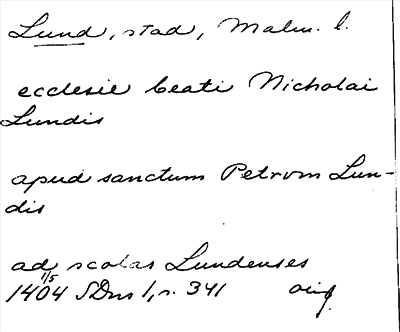 Lund, stad, Malm. l.
ecclesie beati Nicholai
Lundis
apud sanctum Petrvm Lun-
dis
ad scolas Lundenses
1/5
1404 SDns 1, s. 341 orig.